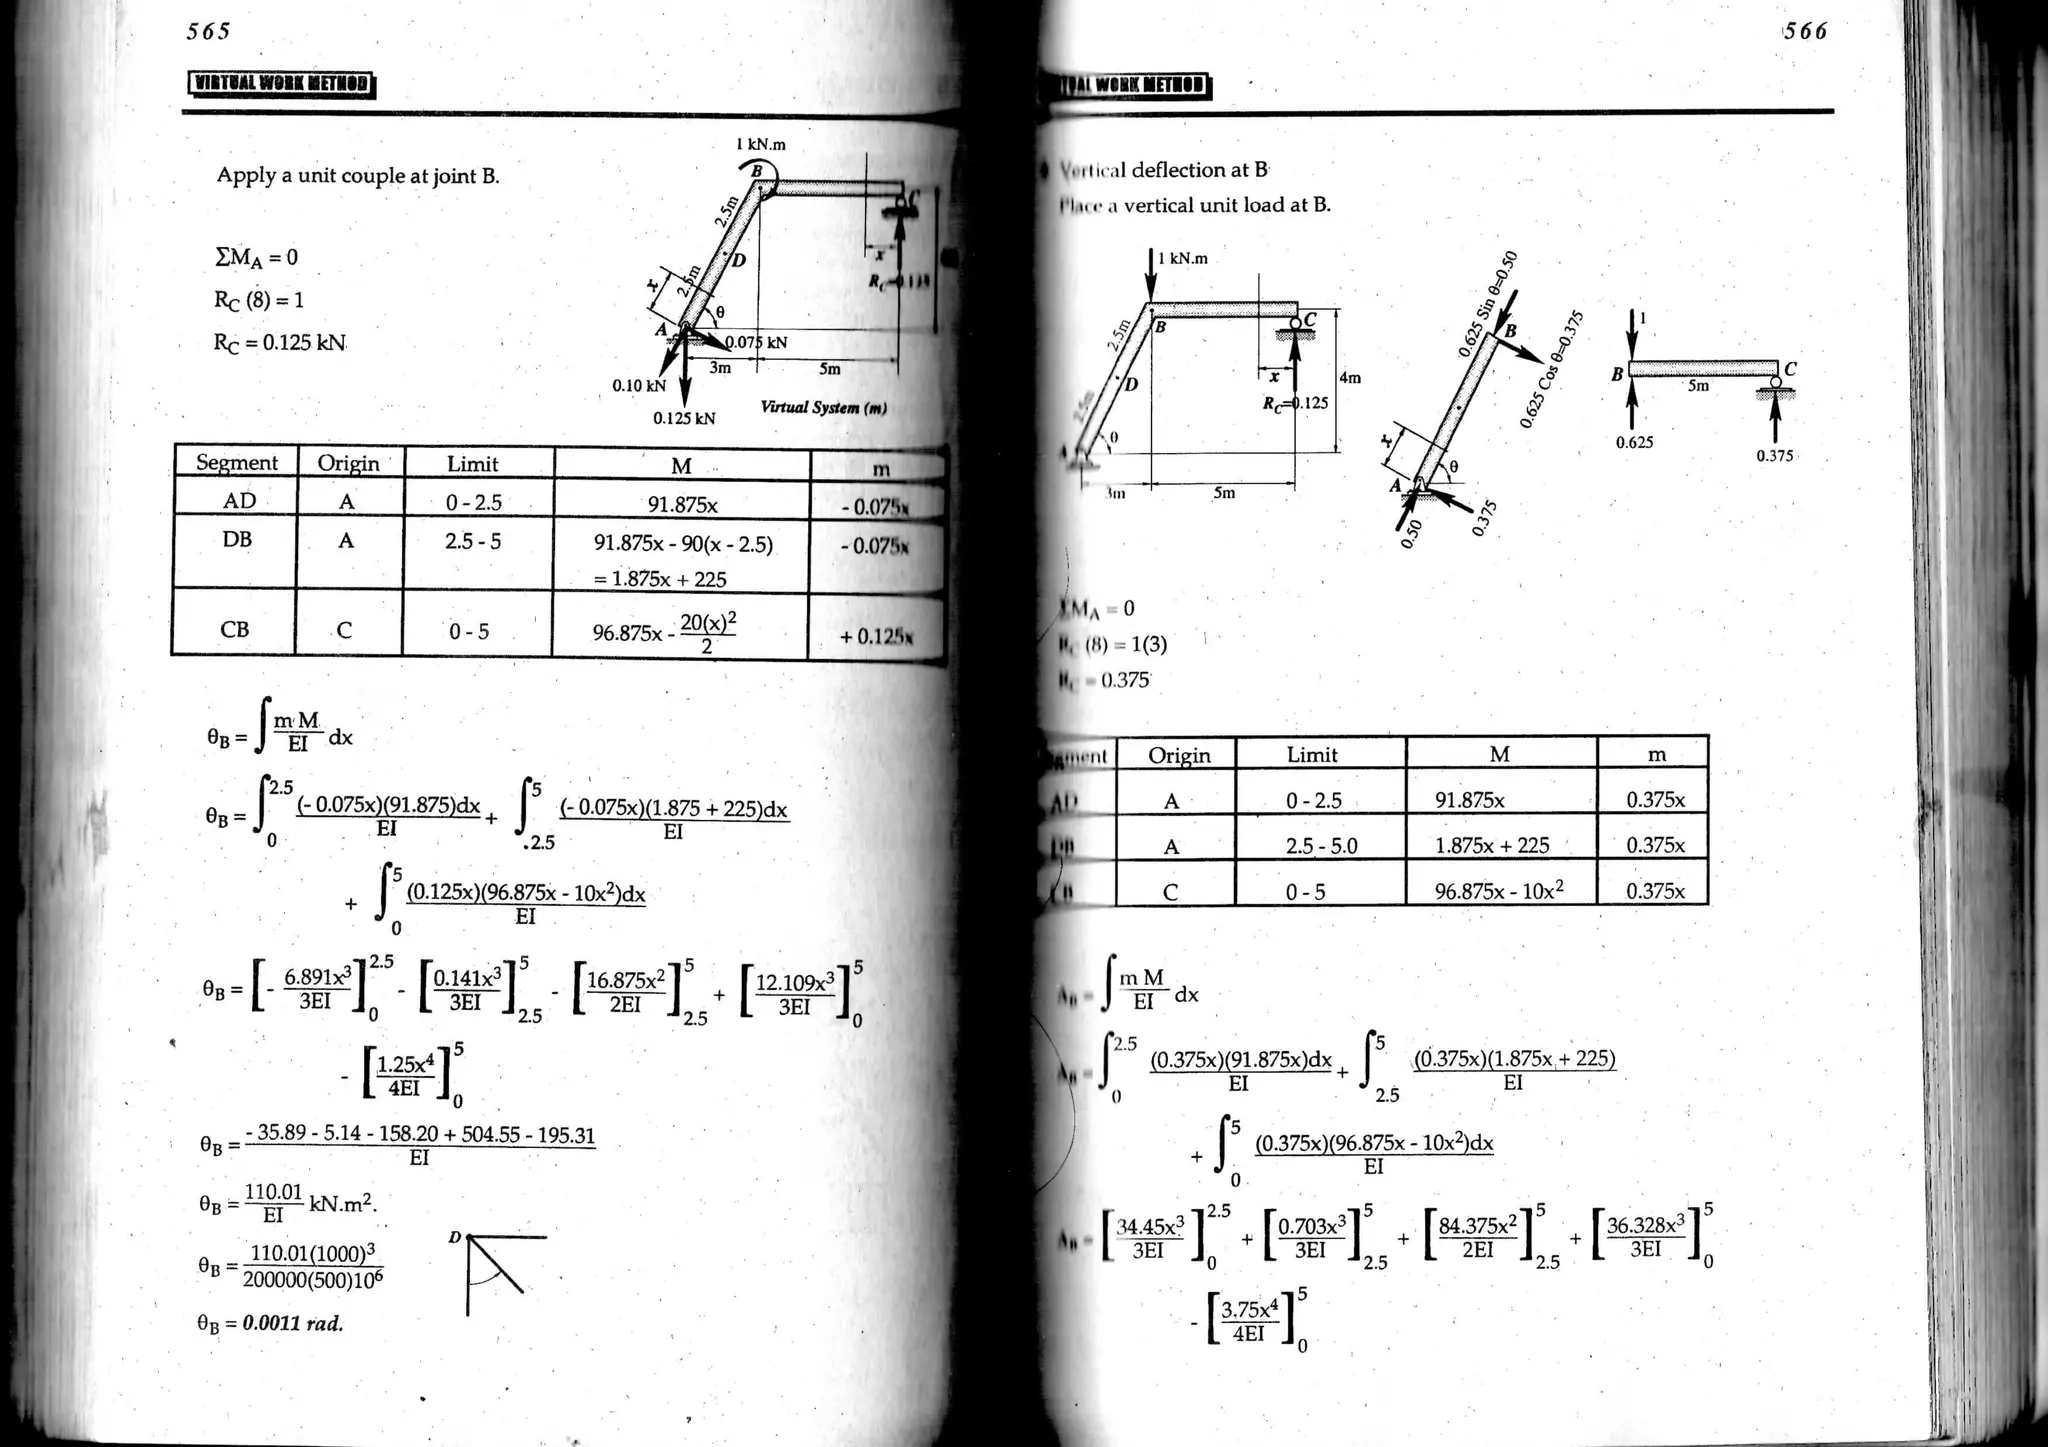 565
VIRTUAL WORK METHOD
Apply a unit couple at joint B.
ΣM_A = 0
R_C (8) = 1
R_C = 0.125 kN
1 kN.m
B
C
2.5m
D
2.5m
x
x
θ
A
0.075 kN
3m
5m
0.10 kN
0.125 kN
Virtual System (m)
Segment Origin Limit M m
AD A 0 - 2.5 91.875x - 0.075x
DB A 2.5 - 5 91.875x - 90(x - 2.5) - 0.075x
= 1.875x + 225
CB C 0 - 5 96.875x - 20(x)²/2 + 0.125x
θ_B = ∫ m M/EI dx
θ_B = ∫₀^2.5 (- 0.075x)(91.875)dx/EI + ∫_2.5^5 (- 0.075x)(1.875 + 225)dx/EI
+ ∫₀^5 (0.125x)(96.875x - 10x²)dx/EI
θ_B = [- 6.891x³/3EI]₀^2.5 - [0.141x³/3EI]_2.5^5 - [16.875x²/2EI]_2.5^5 + [12.109x³/3EI]₀^5
- [1.25x⁴/4EI]₀^5
θ_B = - 35.89 - 5.14 - 158.20 + 504.55 - 195.31/EI
θ_B = 110.01/EI kN.m².
θ_B = 110.01(1000)³/200000(500)10⁶
D
θ_B = 0.0011 rad.
566
WORK METHOD
Vertical deflection at B
Place a vertical unit load at B.
1 kN.m
2.5m
B
C
D
x
4m
R_C=0.125
θ
3m
5m
0.625 Sin θ=0.50
B
0.625 Cos θ=0.375
x
θ
A
0.50
0.375
1
B
C
5m
0.625
0.375
ΣM_A = 0
R_C (8) = 1(3)
R_C = 0.375
Segment Origin Limit M m
AD A 0 - 2.5 91.875x 0.375x
DB A 2.5 - 5.0 1.875x + 225 0.375x
CB C 0 - 5 96.875x - 10x² 0.375x
= ∫ m M/EI dx
= ∫₀^2.5 (0.375x)(91.875x)dx/EI + ∫_2.5^5 (0.375x)(1.875x + 225)/EI
+ ∫₀^5 (0.375x)(96.875x - 10x²)dx/EI
= [34.45x³/3EI]₀^2.5 + [0.703x³/3EI]_2.5^5 + [84.375x²/2EI]_2.5^5 + [36.328x³/3EI]₀^5
- [3.75x⁴/4EI]₀^5